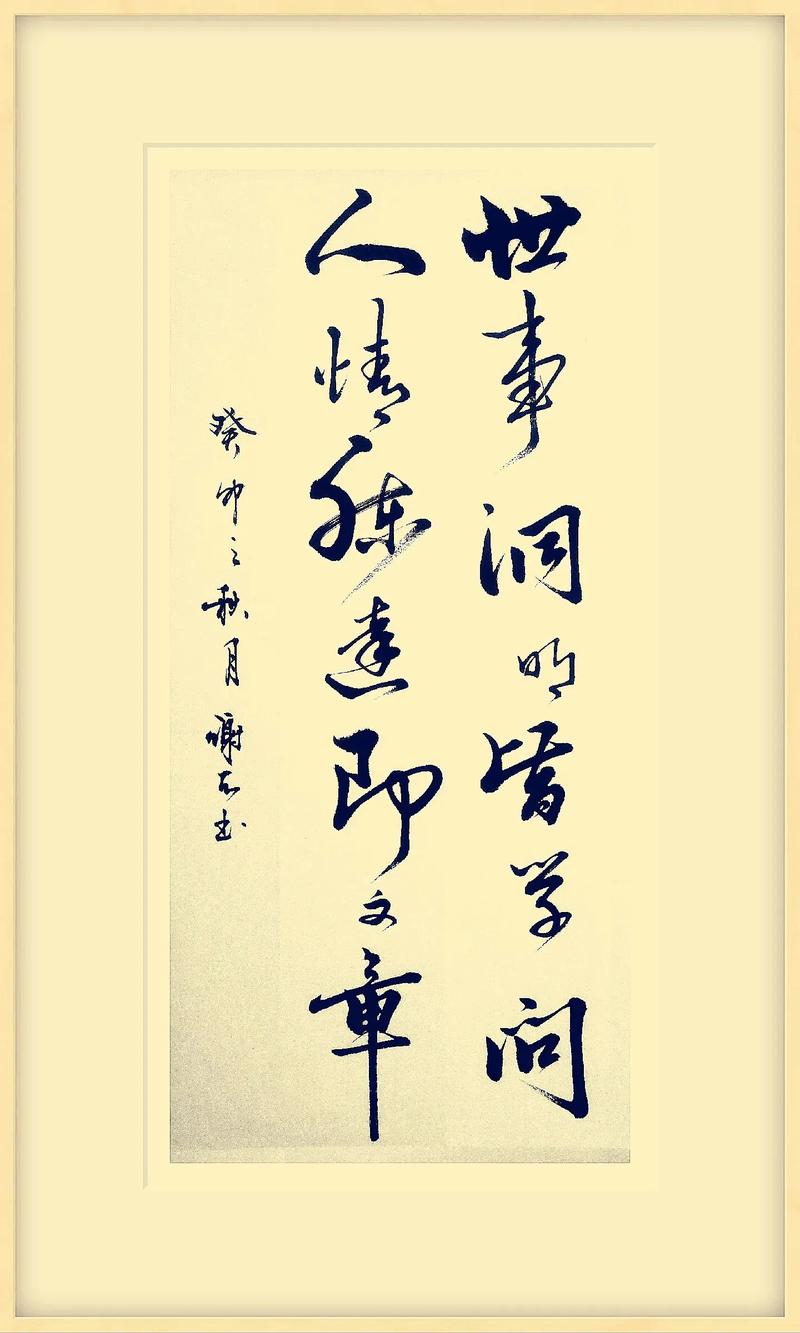 世事洞明皆学问
人情练達即文章
癸卯之秋月谢书